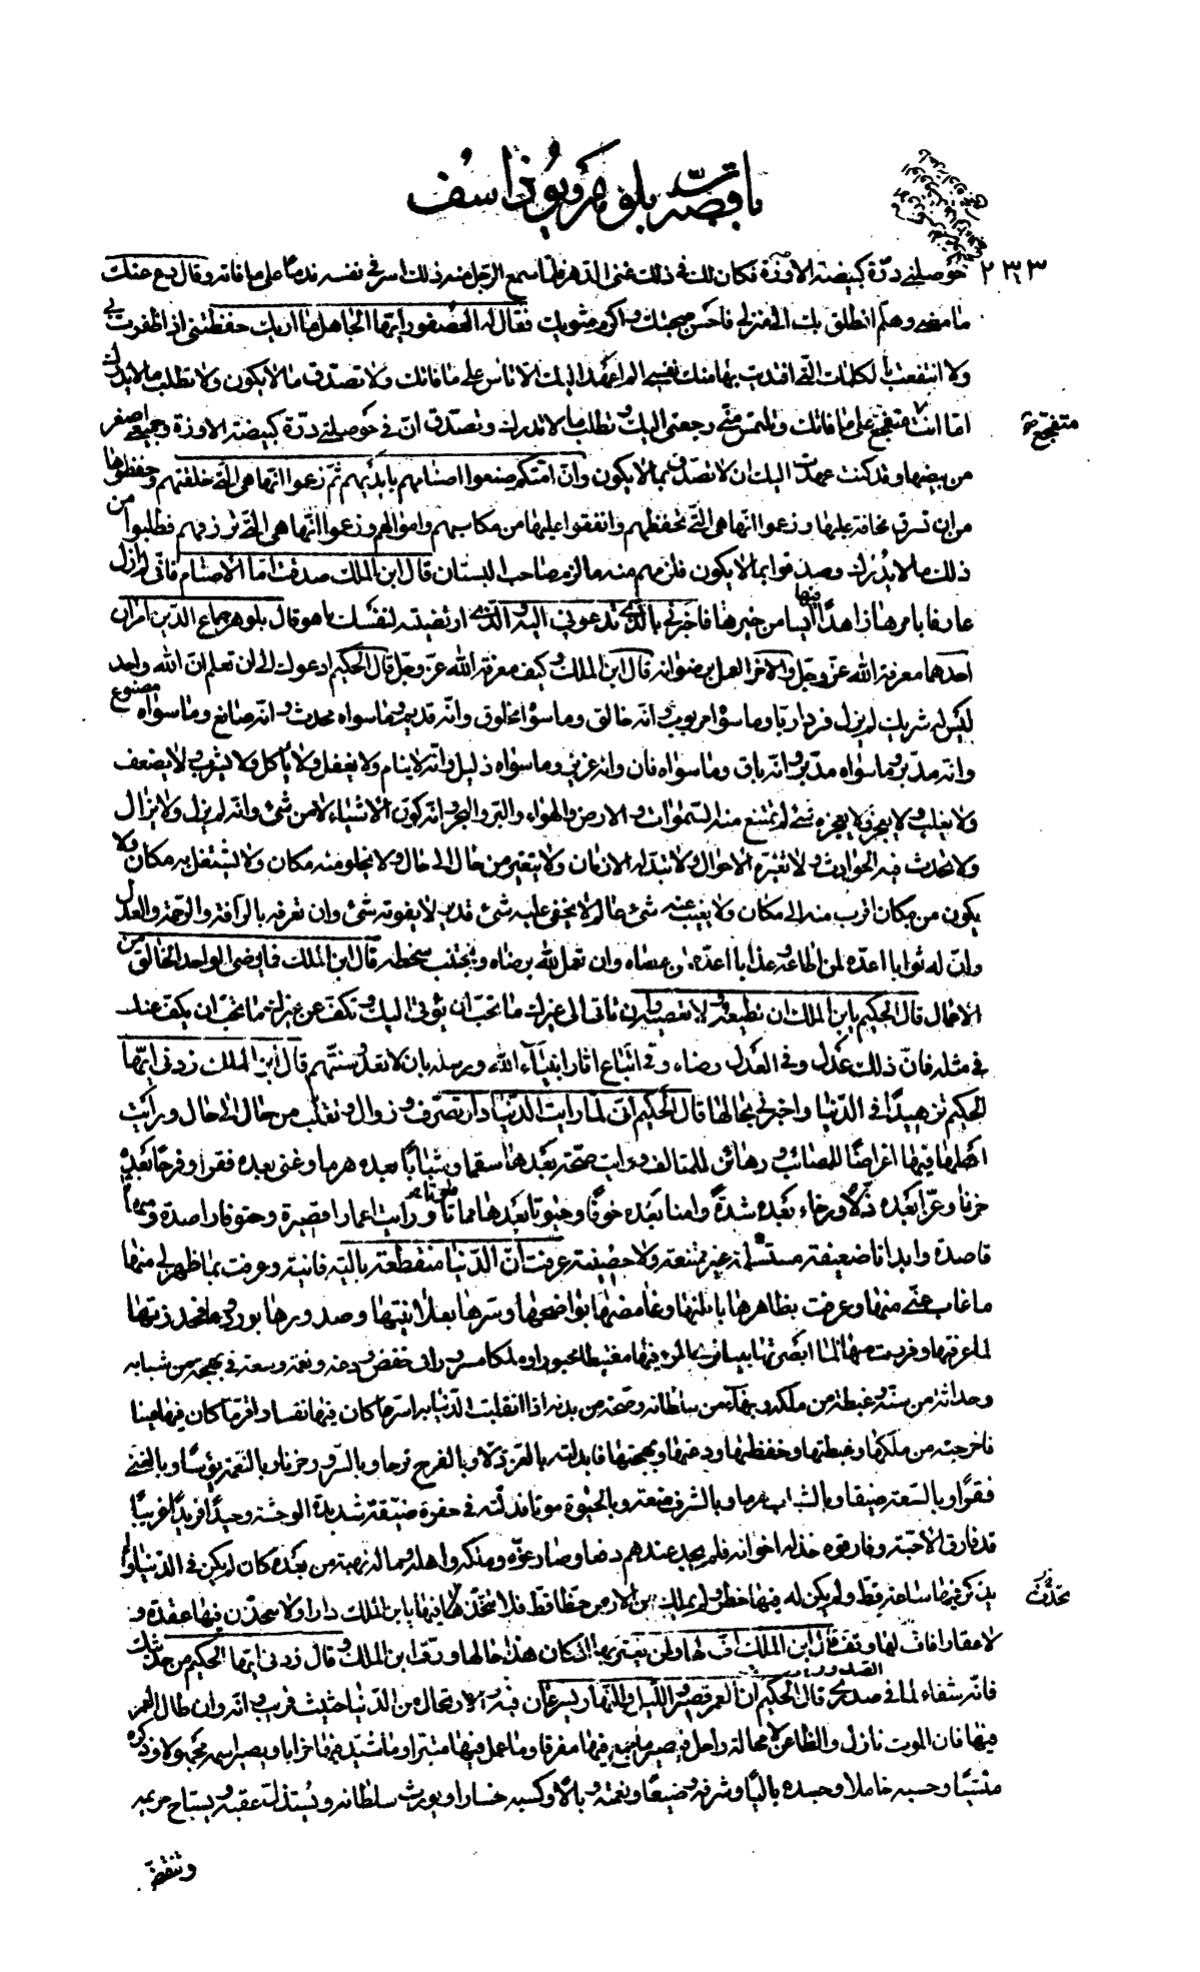 باقی قصّة بلوهر و بوذاسف
٢٣٣ حوصلتي درّة كبيضة الاوزة فكان لك في ذلك غنى الدهر فلما سمع الرجل منه ذلك اسر في نفسه ندما على ما فاته وقال دع عنك
ما مضى وهلم انطلق بك الى منزلي فاحسن صحبتك واكرم مثويك فقال له العصفور ايها الجاهل ما اريك حفظتني اذا ظفرت بي
ولا انتفعت بالكلمات التي افتديت بها منك نفسي الم اعهد اليك الا تاس على ما فاتك ولا تصدق ما لا يكون ولا تطلب ما لا يدرك
اما انت متفجع على ما فاتك وتلتمس مني رجعتي اليك وتطلب ما لا تدرك وتصدق ان في حوصلتي درّة كبيضة الاوزة وجميعي اصغر
متفجع
من بيضها وقد كنت عهدت اليك ان لا تصدق بما لا يكون وان امتكم صنعوا اصنامهم بايديهم ثم زعموا انها هي التي خلقتهم وحفظوها
من ان تسرق مخافة عليها وزعموا انها هي التي تحفظهم وانفقوا عليها من مكاسبهم واموالهم وزعموا انها هي التي ترزقهم فطلبوا من
ذلك ما لا يدرك وصدقوا بما لا يكون فلزمهم منه ما لزم صاحب البستان قال ابن الملك صدقت اما الاصنام فانى لم ازل
عارفا بامرها زاهدا فيها ايسا من خيرها فاخبرني بالذي تدعوني اليه والذي ارتضيته لنفسك ما هو قال بلوهر جماع الدين امران
احدهما معرفة الله عزّ وجلّ والاخر العمل برضوانه قال ابن الملك وكيف معرفة الله عزّ وجلّ قال الحكيم ادعوك الى ان تعلم ان الله واحد
ليس له شريك لم يزل فردا ربا وما سواه مربوب وانه خالق وما سواه مخلوق وانه قديم وما سواه محدث وانه صانع وما سواه مصنوع
وانه مدبّر وما سواه مدبّر وانه باق وما سواه فان وانه عزيز وما سواه ذليل وانه لا ينام ولا يغفل ولا ياكل ولا يشرب ولا يضعف
ولا يغلب ولا يعجز ولا يعجزه شئ لم يمتنع منه السموات والارض والهواء والبر والبحر وانه كون الاشياء لا من شئ وانه لم يزل ولا يزال
ولا تحدث فيه الحوادث ولا تغيره الاحوال ولا تبدله الازمان ولا يتغير من حال الى حال ولا يخلو منه مكان ولا يشتغل به مكان ولا
يكون من مكان اقرب منه الى مكان ولا يغيب عنه شئ عالم لا يخفى عليه شئ قدير لا يفوته شئ وان تعرفه بالرأفة والرحمة والعدل
وان له ثوابا اعده لمن اطاعه وعذابا اعده لمن عصاه وان تعمل لله برضاه وتجتنب سخطه قال ابن الملك فما يرضي الواحد الخالق من
الاعمال قال الحكيم يا بن الملك ان تطيعه ولا تعصيه وان تاتى الى غيرك ما تحب ان يؤتى اليك وتكف عن غيرك ما تحب ان يكف عنك
في مثله فان ذلك عدل وفي العدل رضاه وفي اتباع اثار انبياء الله ورسله بان لا تعدو سنتهم قال ابن الملك زدني ايها
الحكيم تزهيدا في الدنيا واخبرني بحالها قال الحكيم اني لما رايت الدنيا دار تصرف وزوال وتقلب من حال الى حال ورايت
اهلها فيها اغراضا للمصائب ورهائن للمتالف ورايت صحة بعدها سقما وشبابا بعده هرما وغنى بعده فقرا وفرحا بعده
حزنا وعزّا بعده ذلا ورخاء بعده شدة وامنا بعده خوفا وحيوة بعدها مماتا ورايت اعمارا قصيرة وحتوفا راصدة وسهاما
قاصدة وابدانا ضعيفة مستسلمة غير ممتنعة ولا حصينة عرفت ان الدنيا منقطعة بالية فانية وعرفت بما ظهر لي منها
ما غاب عنّي منها وعرفت بظاهرها باطنها وغامضها بواضحها وسرها بعلانيتها وصدورها بورودها فحذرتها
لما عرفتها وفررت منها لما ابصرتها بينا ترى المرء فيها مغتبطا محبورا وملكا مسرورا في خفض ودعة ونعمة وسعة في بهجة من شبابه
وحداثة من سنه وغبطة من ملكه وبهاء من سلطانه وصحة من بدنه اذا انقلبت الدنيا به اسر ما كان فيها نفسا واقر ما كان فيها عينا
فاخرجته من ملكها وغبطتها وخفضها ودعتها وبهجتها فابدلته بالعز ذلا وبالفرح ترحا وبالسرور حزنا وبالنعمة بؤسا وبالغنى
فقرا وبالسعة ضيقا وبالشباب هرما وبالشرف ضعة وبالحيوة موتا فدلته في حفرة ضيقة شديدة الوحشة وحيدا فريدا غريبا
قد فارق الاحبة وفارقوه خذله اخوانه فلم يجد عندهم دفعا وصار عزّه وملكه واهله وماله نهبة من بعده كان لم يكن في الدنيا ولم
يذكر فيها ساعة قط ولم يكن له فيها خطر ولم يملك من الارض حظا قط فلا تتخذها فيها يا بن الملك دارا ولا تتخذن فيها عقدة و
تتخذنّ
لا عقارا فاف لها وتف قال ابن الملك اف لها ولمن يغتر بها اذا كان هذا حالها ورقّ ابن الملك وقال زدني ايها الحكيم من حديثك
فانه شفاء لما في صدري قال الحكيم ان العمر قصير والليل والنهار يسرعان فيه والارتحال من الدنيا حثيث قريب وانه وان طال العمر
فيها فان الموت نازل والظاعن لا محالة راحل فيصير ما جمع فيها مفرقا وما عمل فيها متبرا وما شيد فيها خرابا ويصير اسمه مجهولا وذكره
منسيا وحسبه خاملا وجسده باليا وشرفه وضيعا ونعمته وبالا وكسبه خسارا ويورث سلطانه ويستذل عقبه ويستباح حريمه
وتنقض